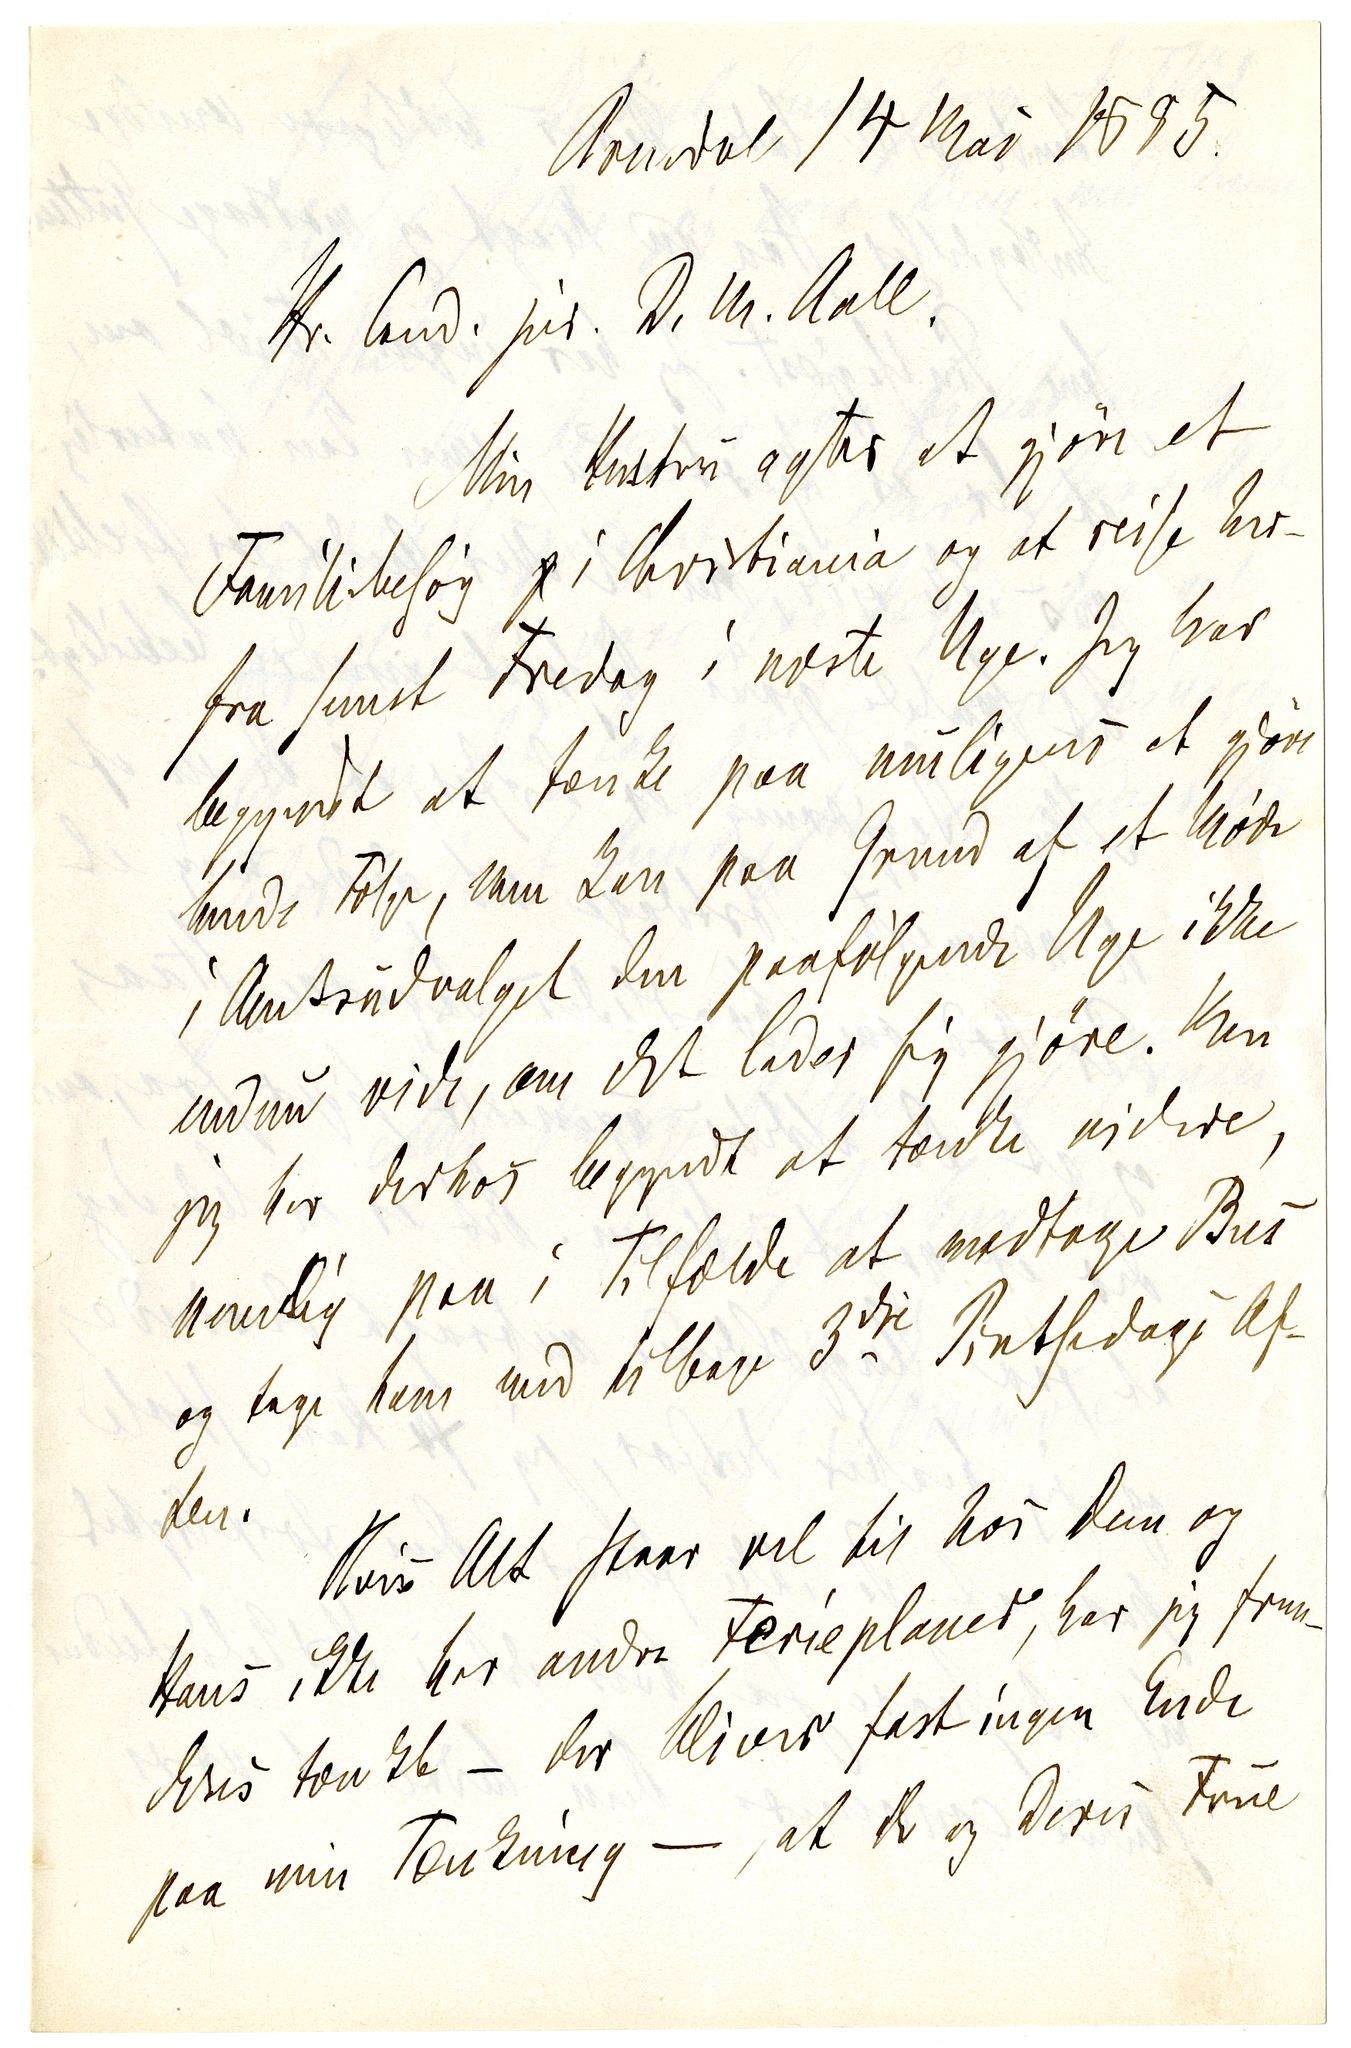 Arendal 14 Mai 1885.
Hr. Cand. jur. D. M. Aall.
Min Hustru agter at gjöre et
Familiebesög i Christiania og at reise her-
fra sidst Fredag i næste Uge. Jeg har
begyndt at tænke paa muligens at gjöre
hende Fölge, men kan paa Grund af et Möde
i Amtsudvalget den paafölgende Uge ikke
endnu vide, om det lader sig gjöre. Men
jeg har derhos begyndt at tænke videre,
nemlig paa i Tilfælde at medtage Bus
og tage ham med tilbage 3die Pintsedags Af-
ten.
Hvis Alt staar vel til hos Dem og
Hans ikke har andre Ferieplaner, har jeg frem-
deles tænkt – der bliver fast ingen Ende
paa min Tænkning –, at De og Deres Frue